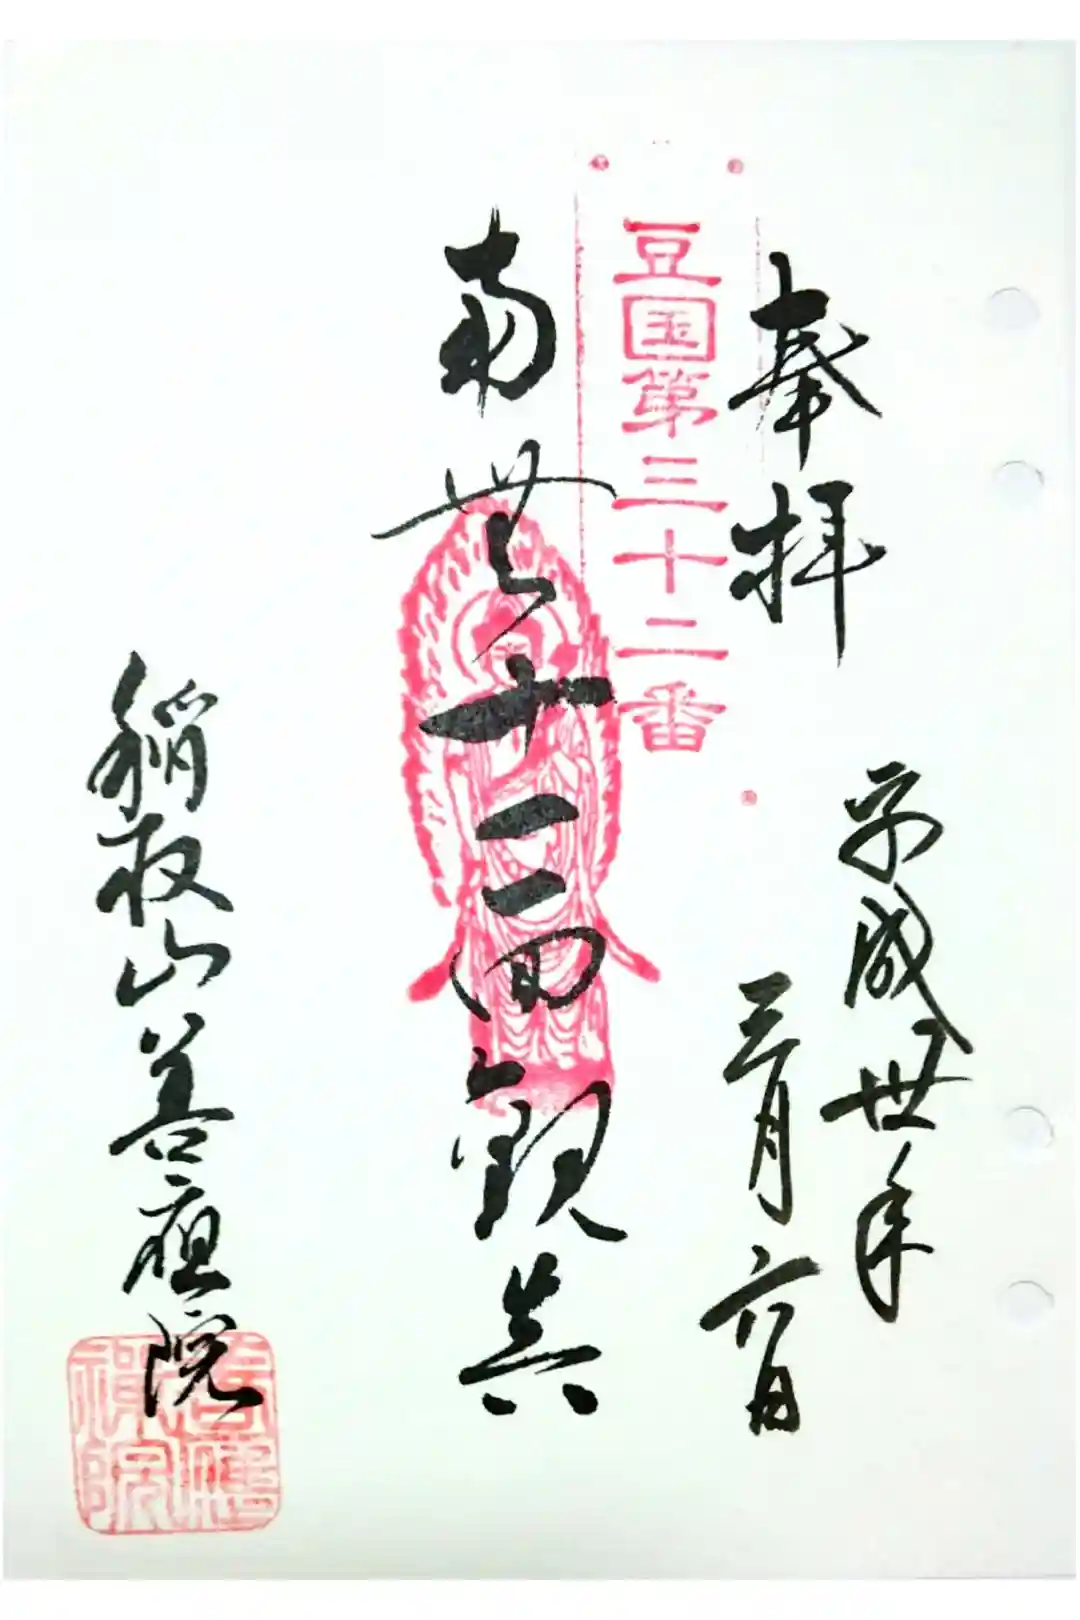 奉拝
平成丗年
三月六日
豆国第三十二番
南無十一面観世音
稲取山善應院
善應
禅院